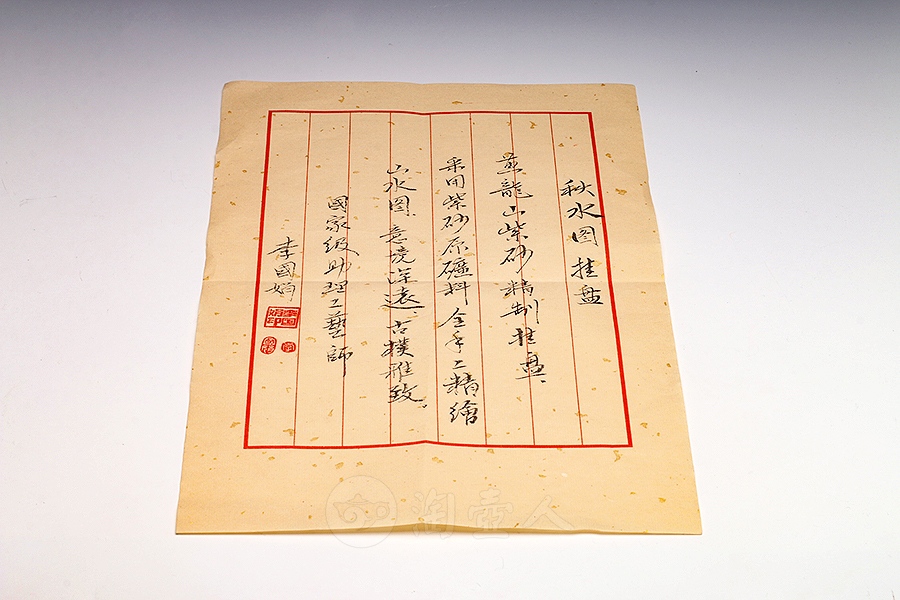 秋水图 挂盘
龍山紫砂精制挂盘、
采用紫砂原礦料全手工精繪
山水图、意境深遠、古撲雅致、
國家级助理工藝師
李國娟
淘壶人